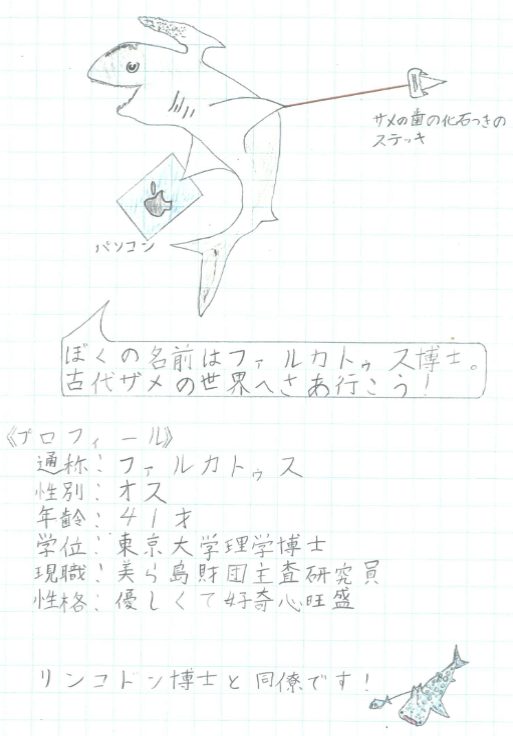 サメの歯の化石つきの
ステッキ
パソコン
ぼくの名前はファルカトゥス博士。
古代ザメの世界へさあ行こう!
《プロフィール》
通称:ファルカトゥス
性別:オス
年齢:41才
学位:東京大学理学博士
現職:美ら島財団主査研究員
性格:優しくて好奇心旺盛
リンコドン博士と同僚です!